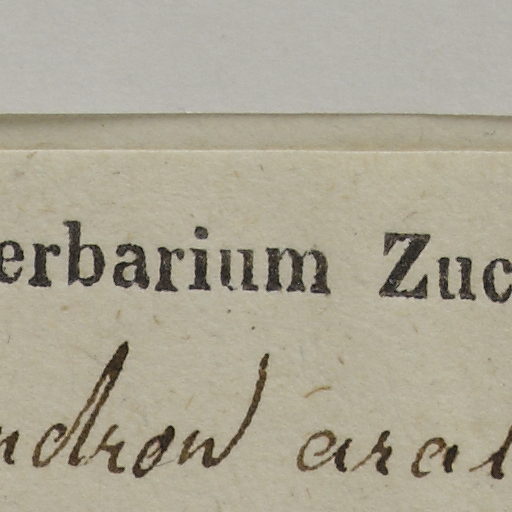 erbarium Zuc
ndron aral